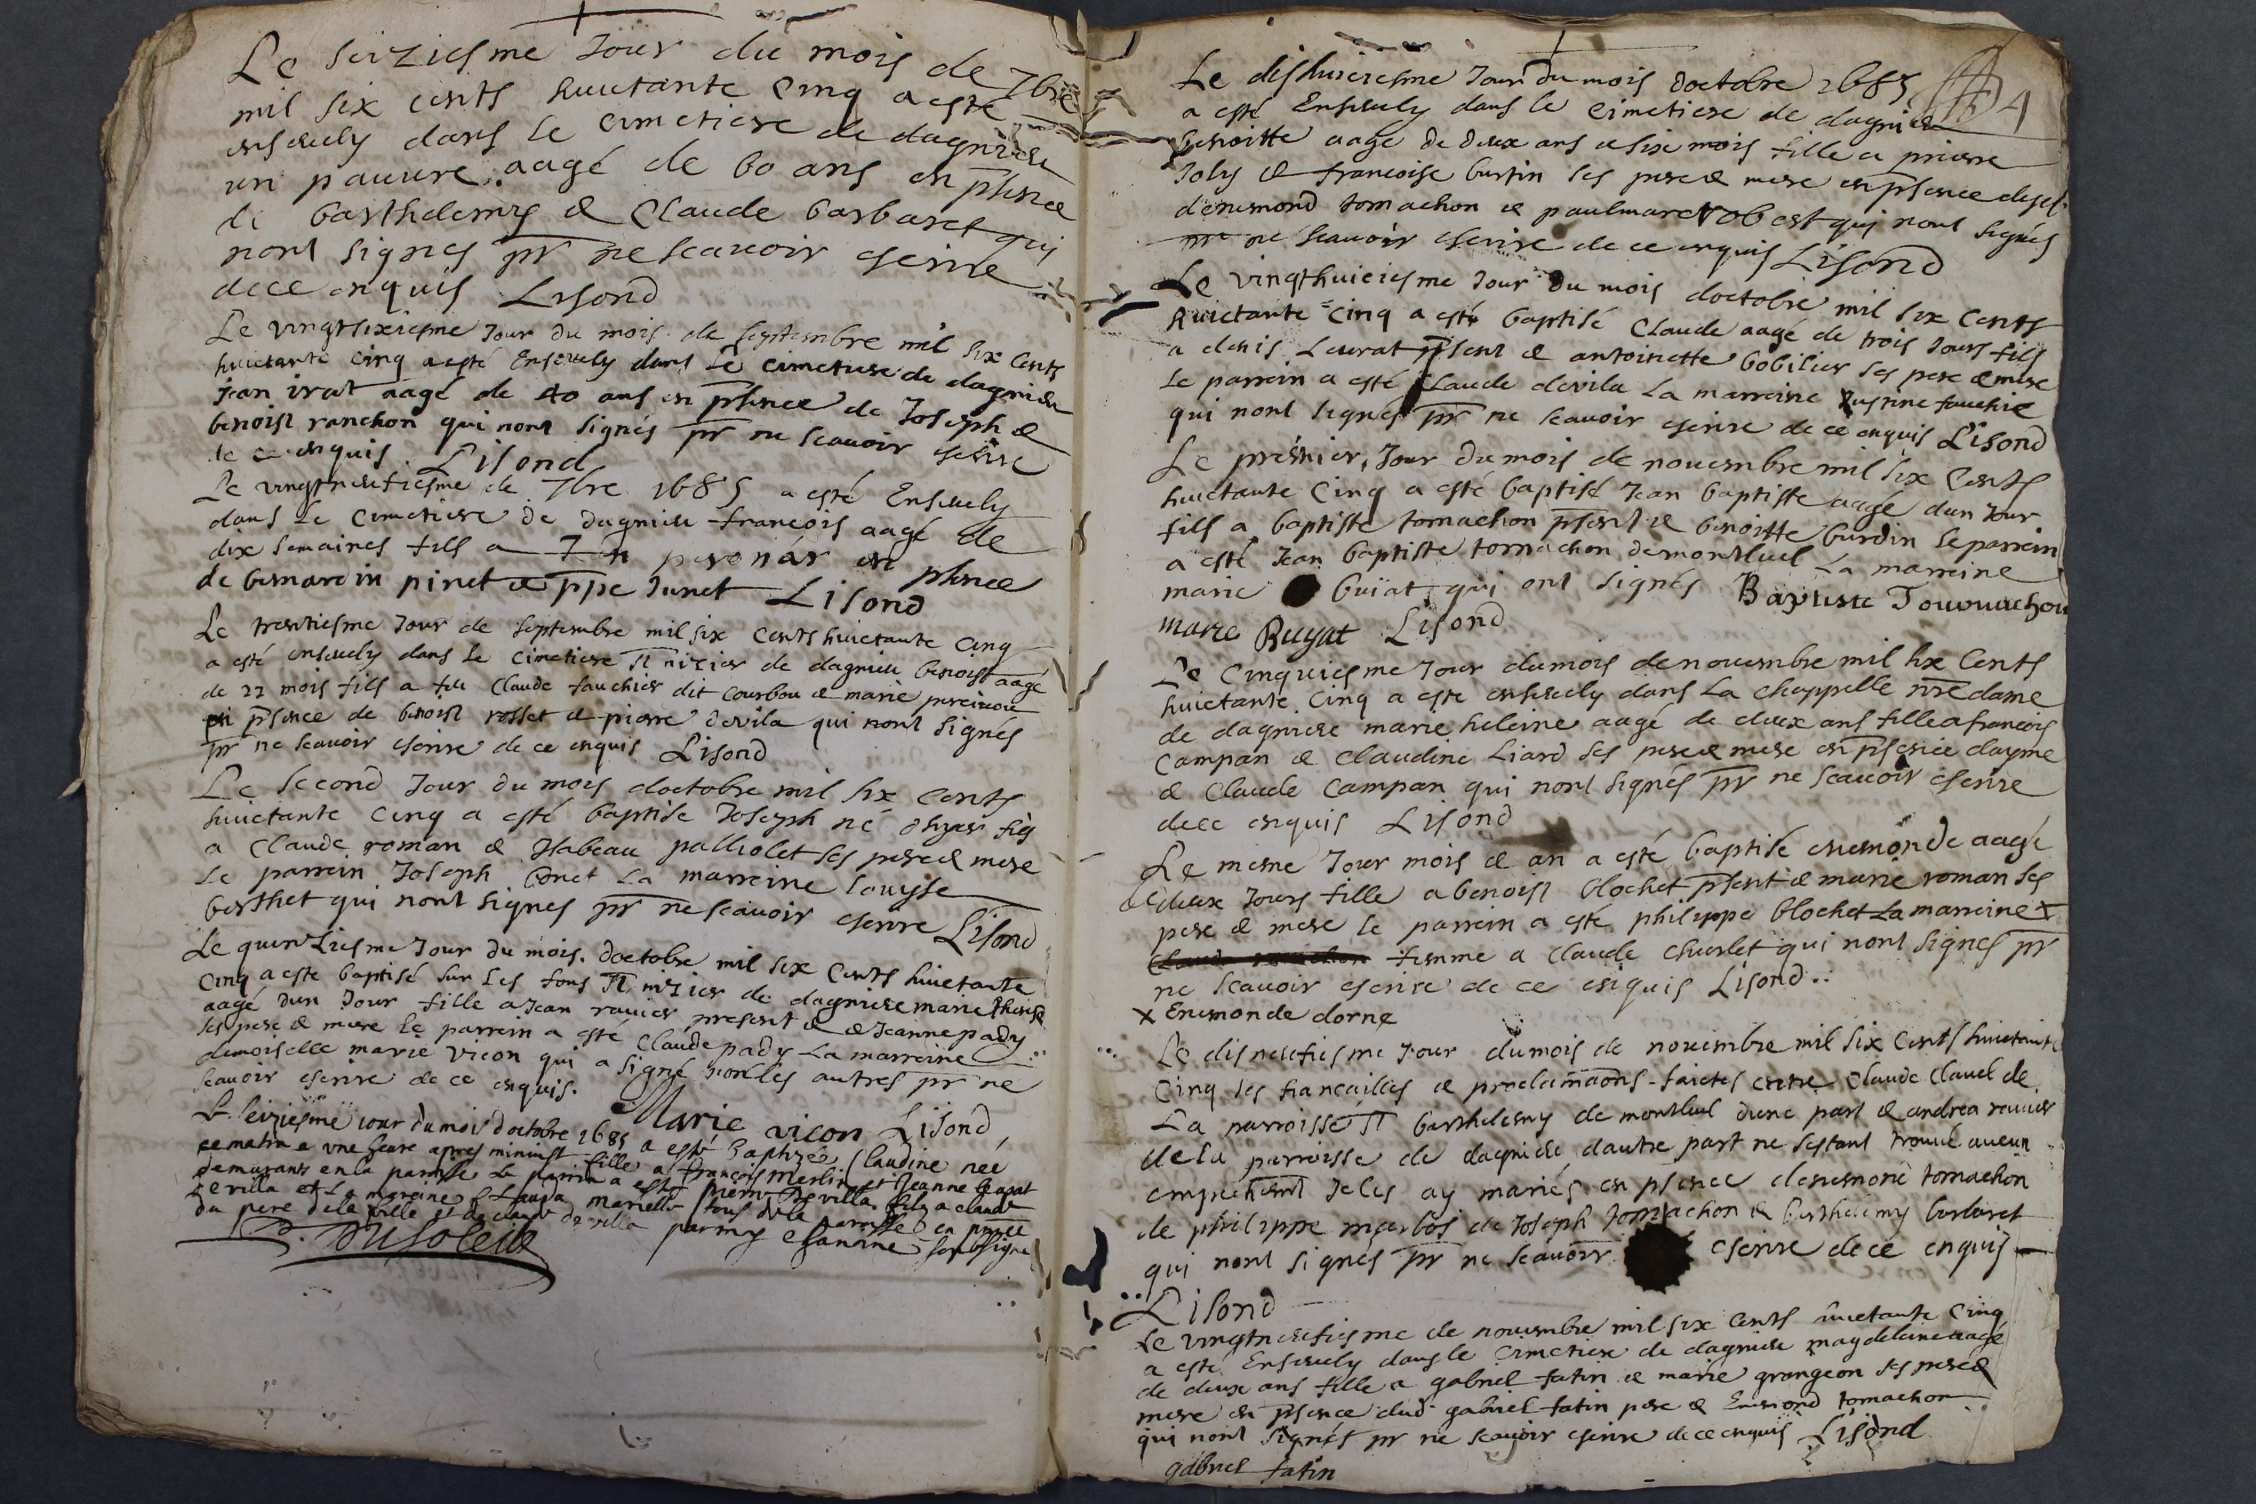 Le seiziesme Jour du mois de 7bre
mil six cents huictante cinq a esté
enseuely dans le cimetiere de dagnieu
un pauure aagé de 60 ans en psence
de barthelemy & Claude barbaret qui
nont signes pr ne scauoir escrire
de ce enquis Lisond
Le vingtsixiesme Jour du mois de septembre mil six cents
huictante cinq a esté Enseuely dans le cimetiere de dagnieu
jean irat aagé de 40 ans en psence de Joseph &
benoist ranchon qui nont signés pr ne scauoir escrire
de ce enquis Lisond
Le vingtneufiesme de 7bre 1685 a esté Enseuely
dans le cimetiere de dagnieu francois aagé de
dix semaines fils a peronar en psence
de bernardin pinet & ppe Junet Lisond
Le trentiesme Jour de septembre mil six cents huictante cinq
a esté enseuely dans le cimetiere st nisier de dagnieu benoist aagé
de 22 mois fils a feu Claude fauchier dit Courbou & marie
en psence de benoist rosset & pierre devila qui nont signés
pr ne scauoir escrire de ce enquis Lisond
Le second Jour du mois doctobre mil six cents
huictante cinq a esté baptise Joseph né fils
a Claude roman & Isabeau palliolet ses pere & mere
le parrein Joseph la marreine Louyse
berthet qui nont signes pr ne scauoir escrire Lisond
Le quinziesme Jour du mois doctobre mil six cents huictante
cinq a este baptisé sur les fons st nizier de dagnieu marie therese
aagé dun Jour fille a Jean rauier present & Jeanne pady
ses pere & mere le parrein a esté Claude pady la marreine
demoiselle marie vicon qui a signé non les autres pr ne
scauoir escrire de ce enquis. Marie vicon Lisond
Le seiziesme iour du mois doctobre 1685 a esté baptizée Claudine née
ce matin a vne heure apres minuit fille a françois Merlin et Jeanne
demurants en la paroisse Le parrin a esté pierre Devilla fils a claude
devilla et la mareine tous de la paroisse en pnce
du pere de la fille et de claude devilla parmy soubsigne
Dusoleil
4
Le dishuicieme Jour du mois doctobre 1685
a esté Enseuely dans le cimetiere de dagnieu
benoitte aage de deux ans & six mois fille a prierre
Joly & francoise burtin ses pere & mere en psence
denemond tomachon & paulmare robert qui nont signés
pr ne scauoir escrire de ce enquis Lisond
Le vingthuiciesme Jour du mois doctobre mil six cents
huictante cinq a esté baptisé Claude aagé de trois Jours fils
a denis Leurat psent & antoinette bobilier ses pere & mere
le parrein a esté Claude devila La marreine fauchie
qui nont signés pr ne scauoir escrire de ce enquis Lisond
Le prémier Jour du mois de nouembre mil six cents
huictante cinq a esté baptisé Jean baptiste aagé dun Jour
fils a baptiste tomachon psent & benoitte burdin le parrein
a esté Jean baptiste tomachon de montluel La marreine
marie buiat qui ont signés Baptiste Toumachon
marie Buyat Lisond
Le cinquiesme Jour du mois de nouembre mil six cents
huictante cinq a este enseuely dans la chappelle nre dame
de dagnieu marie heleine aagé de deux ans fille a francois
campan & claudine Liard ses pere & mere en psence dayme
& Claude campan qui nont signés pr ne scauoir escrire
de ce enquis Lisond
Le mesme Jour mois & an a esté baptisé enemonde aagé
de deux Jours fille a benoist blochet psent & marie roman ses
pere & mere le parrein a este philippe blochet La marreine X
femme a Claude churlet qui nont signes pr
ne scauoir escrire de ce enquis Lisond
X Enemonde dorne
Le disneufiesme Jour du mois de nouembre mil six cents huictante
cinq les fiancailles & proclamaons faictes entre Claude Clauel de
La parroisse st barthelemy de montluel dune part & andrea reuuier
de la parroisse de dagnieu dautre part ne sestant trouué aucun
empechemt Je les ay mariés en psence denemond tomachon
de philippe marbos de Joseph tomachon & barthelemy barbaret
qui nont signés pr ne scauoir escrire de ce enquis
Lisond
Le vingtneufiesme de nouembre mil six cents huictante cinq
a esté Enseuely dans le cimetiere de dagnieu magdeleine aagé
de deux ans fille a gabriel fatin & marie grangeon ses pere &
mere en psence dud. gabriel fatin pere & Enemond tomachon
qui nont signés pr ne scauoir escrire de ce enquis Lisond
gabriel fatin